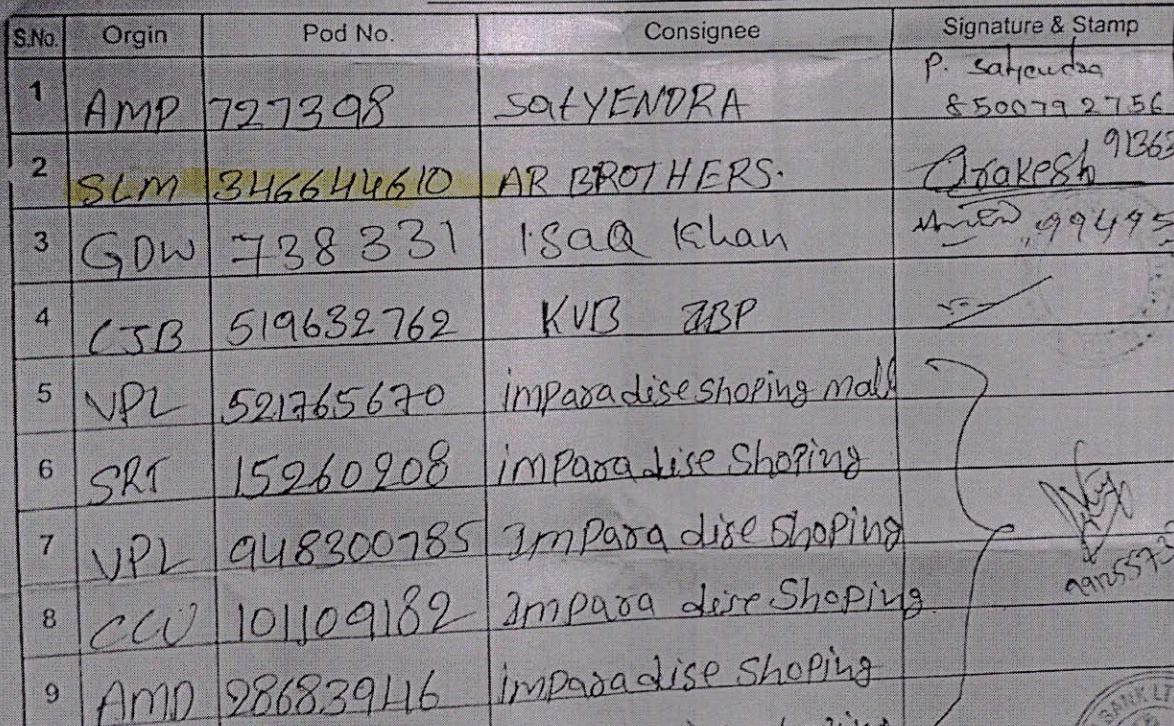 S.No. Orgin Pod No. Consignee Signature & Stamp
1 AMP 727398 SatYENDRA P. Satyendra 8500792756
2 SLM 346644610 AR BROTHERS. Rakesh 91363
3 GDW 738331 ISaQ Khan 99495
4 CJB 519632762 KVB ZBP
5 VPL 521765670 imparadise shoping mall
6 SRT 15260208 imparadise Shoping
7 VPL 948300785 Imparadise Shoping
8 CCU 101109182 Imparadise Shoping
9 AMD 286839416 imparadise Shoping
BANK LT